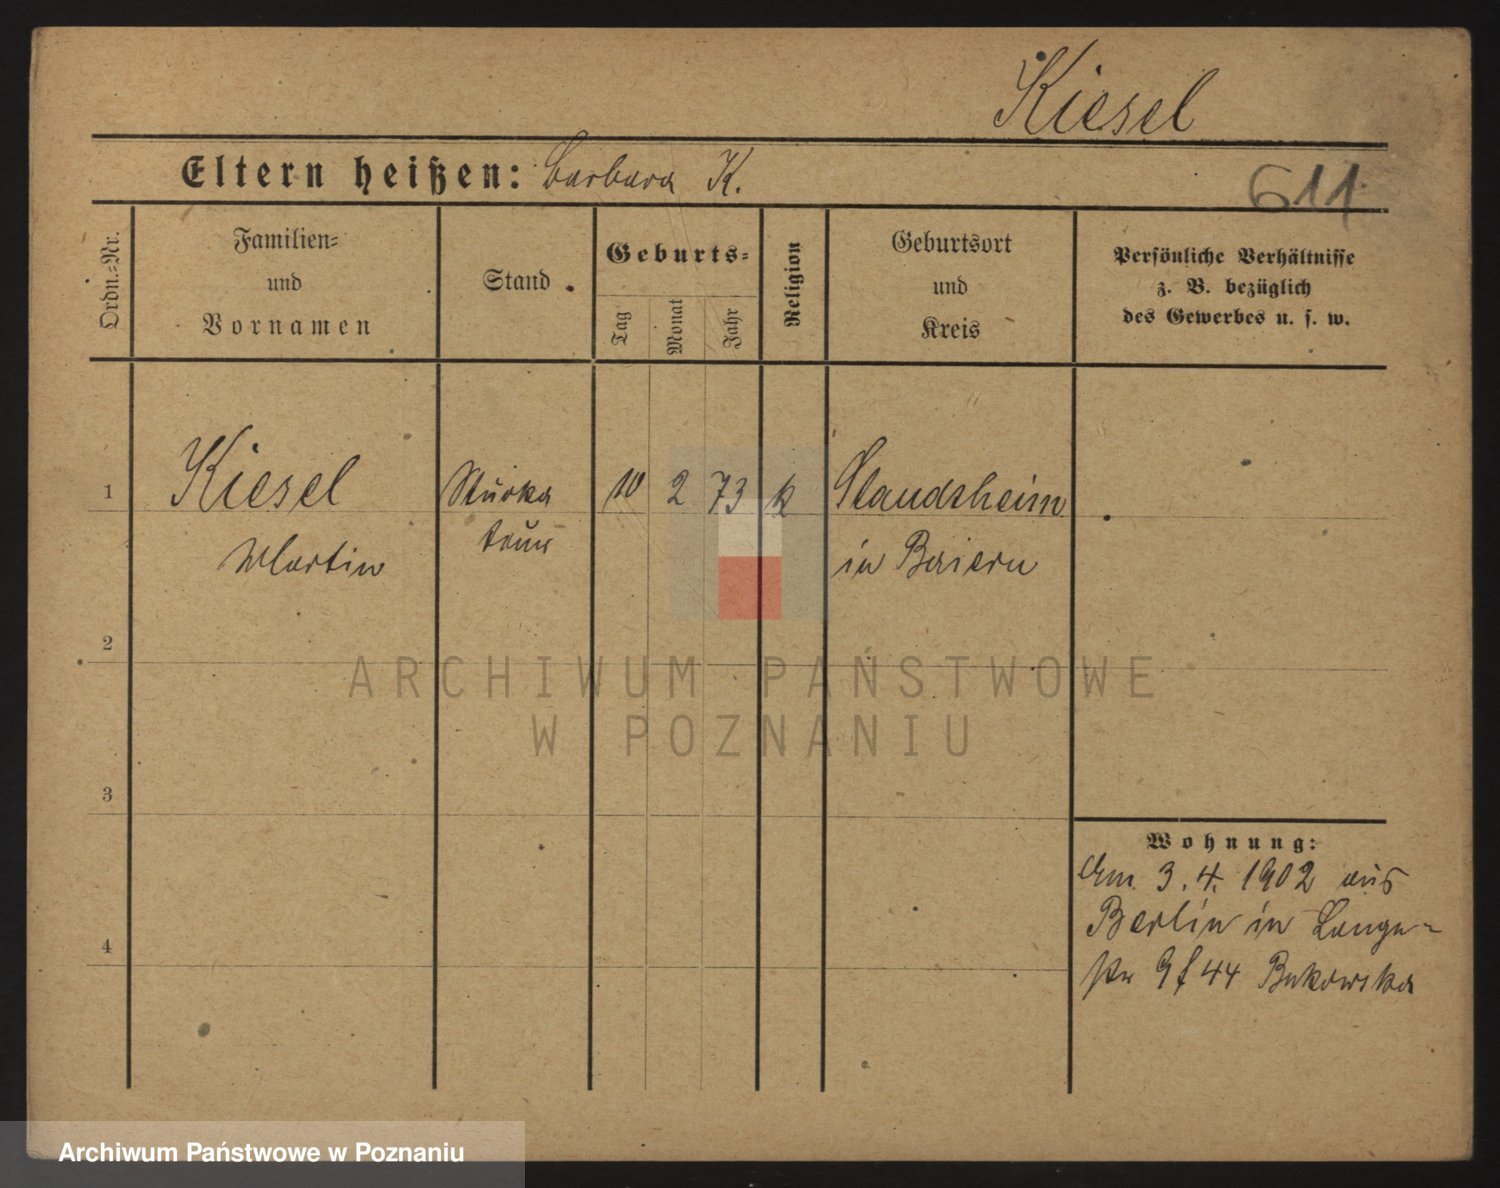 Kiesel
Eltern heißen: Barbara K.
611
Ordn.=Nr.
Familien=
und
Vornamen
Stand
Geburts=
Tag
Monat
Jahr
Religion
Geburtsort
und
Kreis
Persönliche Verhältnisse
z. B. bezüglich
des Gewerbes u. s. w.
1
Kiesel
Martin
Stucka
teur
10
2
73
k
Staudsheim
in Baiern
2
3
4
Wohnung:
Am 3.4. 1902 aus
Berlin in Lange=
str 9 f 44 Bukowska
ARCHIWUM PAŃSTWOWE
W POZNANIU
Archiwum Państwowe w Poznaniu